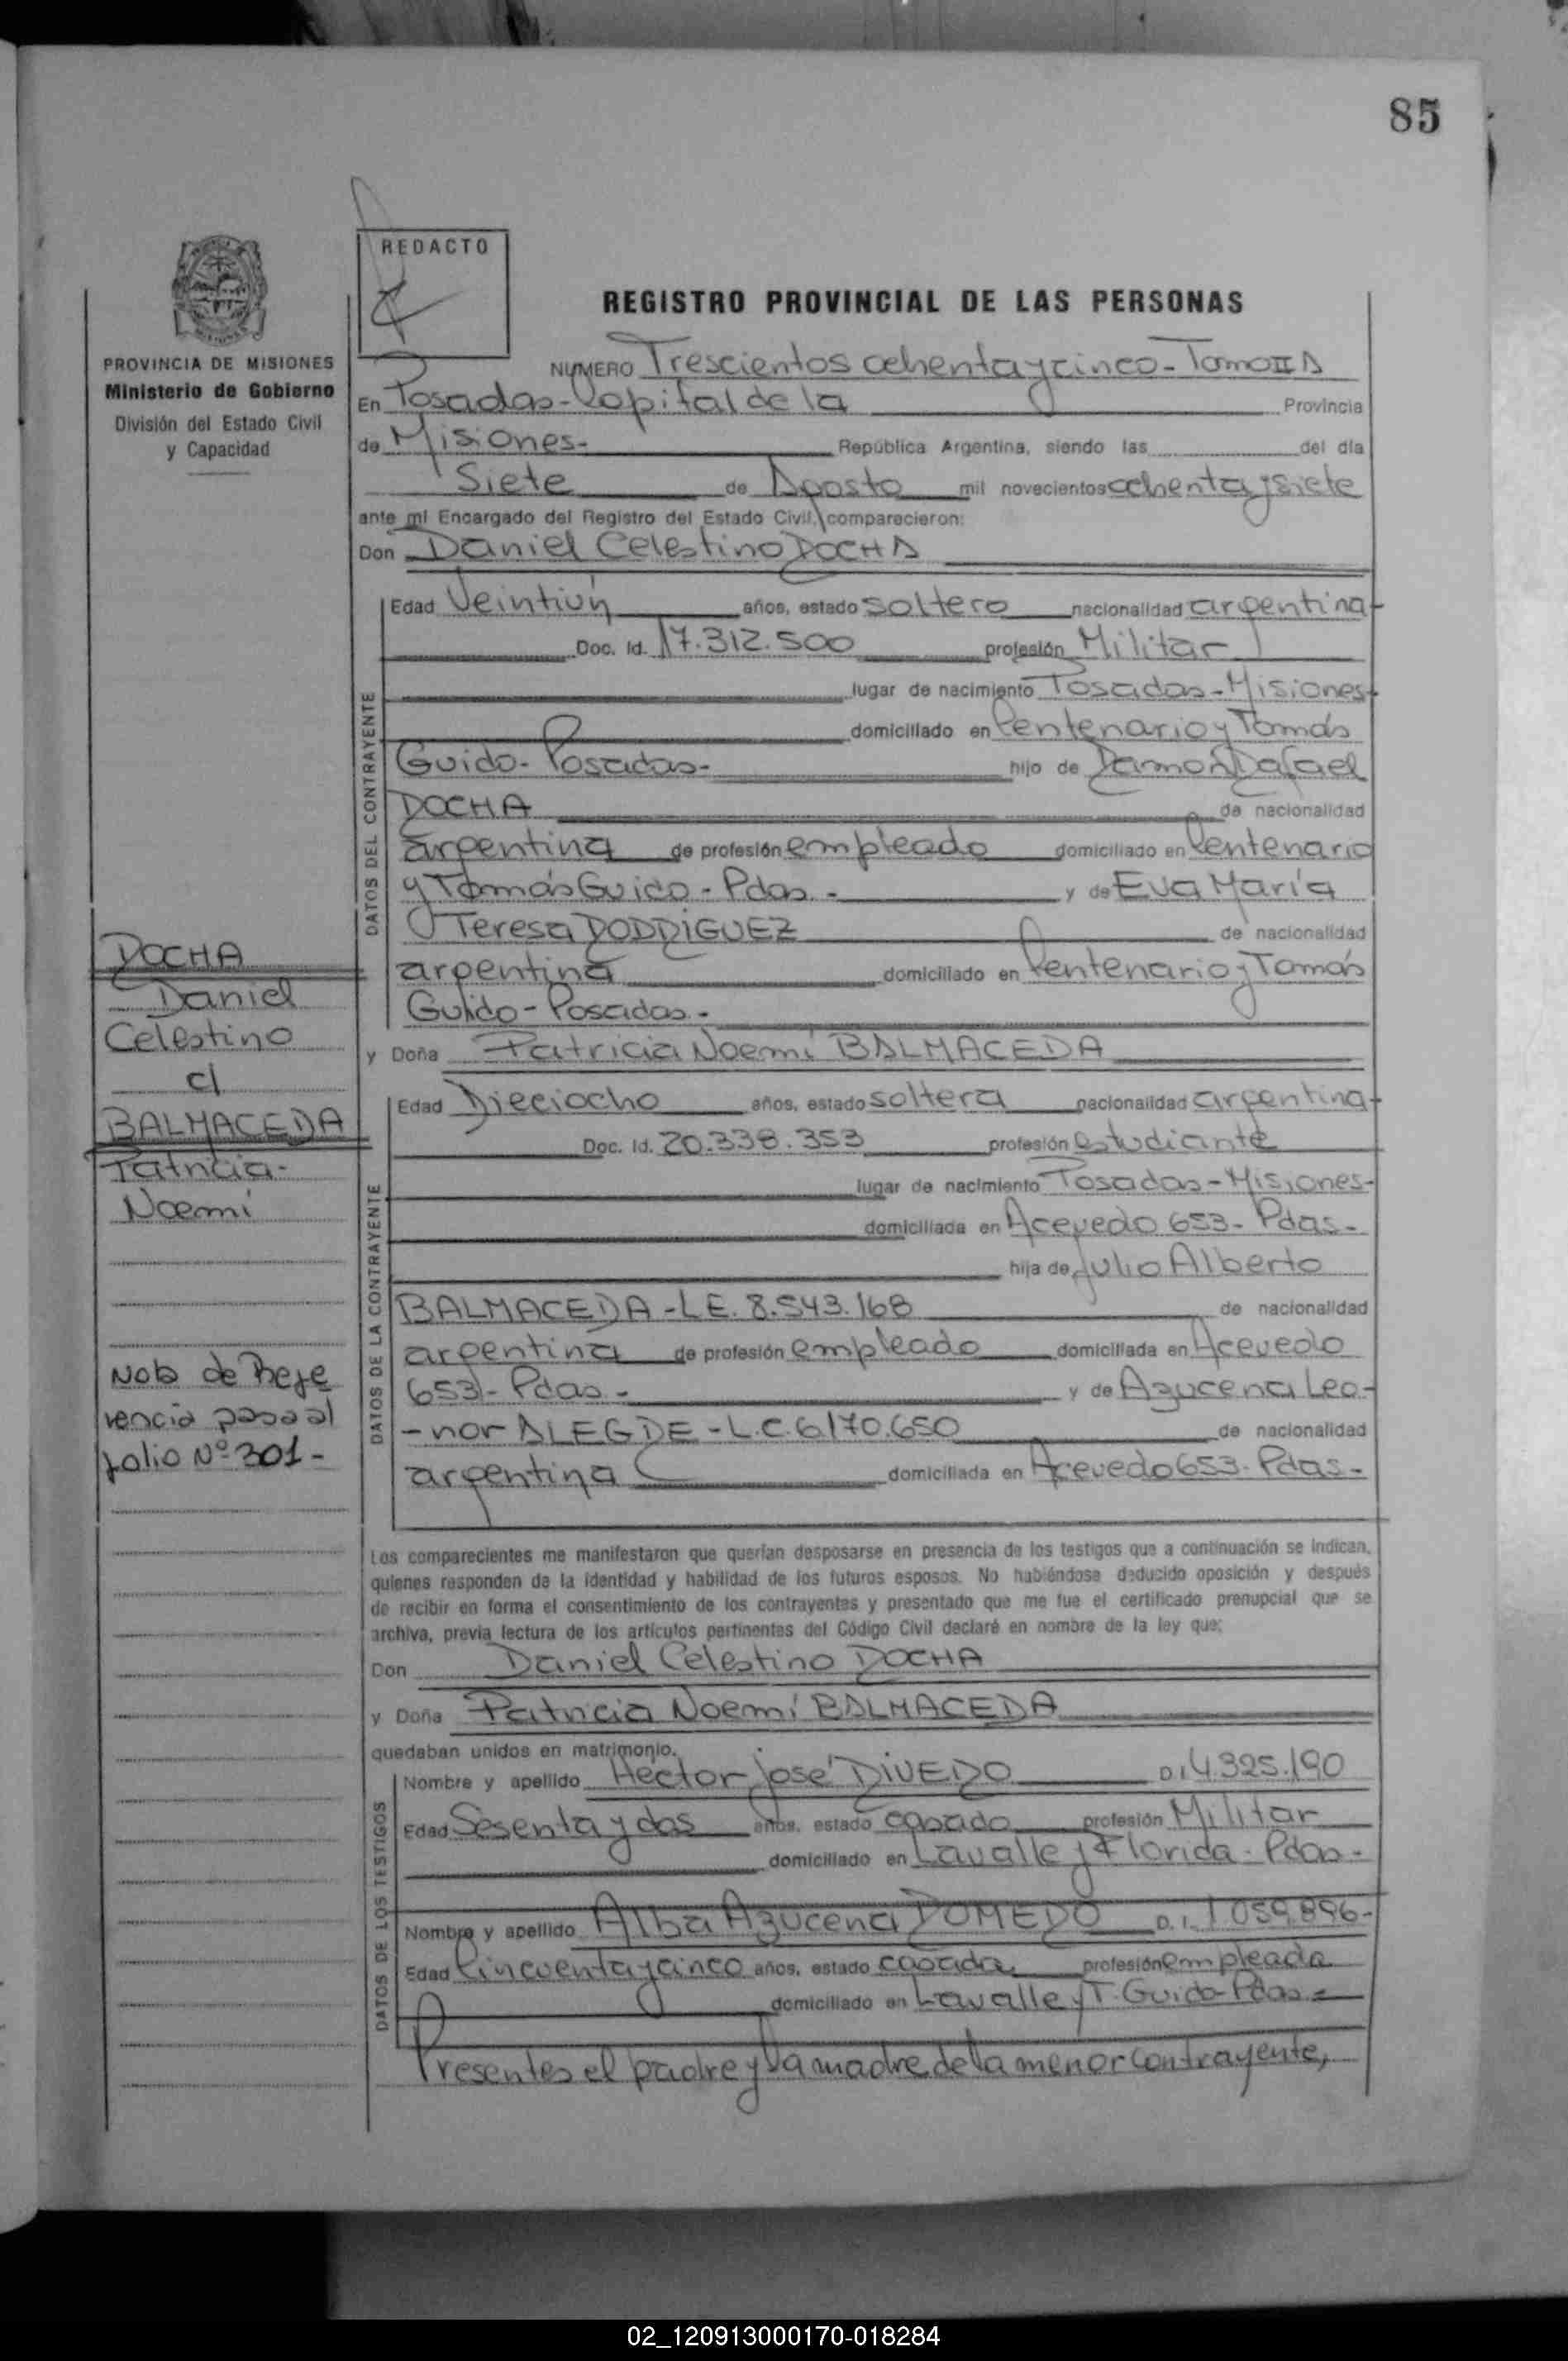 85
REDACTO
REGISTRO PROVINCIAL DE LAS PERSONAS
PROVINCIA DE MISIONES
Ministerio de Gobierno
División del Estado Civil
y Capacidad
NUMERO Trescientos ochenta y cinco - Tomo II A
En Posadas - Capital de la Provincia
de Misiones - República Argentina, siendo las del día
Siete de Agosto mil novecientos ochenta y siete
ante mí Encargado del Registro del Estado Civil, comparecieron:
Don Daniel Celestino ROCHA
DATOS DEL CONTRAYENTE
Edad Veintiún años, estado soltero nacionalidad argentina
Doc. Id. 17.312.500 profesión Militar
lugar de nacimiento Posadas - Misiones -
domiciliado en Centenario y Tomás
Guido - Posadas - hijo de Ramon Rafael
ROCHA de nacionalidad
argentina de profesión empleado domiciliado en Centenario
y Tomás Guido - Pdas. - y de Eva María
Teresa RODRIGUEZ de nacionalidad
argentina domiciliado en Centenario y Tomás
Guido - Posadas -
ROCHA
Daniel
Celestino
c/
BALMACEDA
Patricia
Noemí
Nota de Refe
rencia pasa al
folio Nº 301 -
y Doña Patricia Noemí BALMACEDA
DATOS DE LA CONTRAYENTE
Edad Dieciocho años, estado soltera nacionalidad argentina
Doc. Id. 20.338.353 profesión estudiante
lugar de nacimiento Posadas - Misiones -
domiciliada en Acevedo 653 - Pdas -
hija de Julio Alberto
BALMACEDA - L E. 8.543.168 de nacionalidad
argentina de profesión empleado domiciliada en Acevedo
653 - Pdas - y de Azucena Leo-
- nor ALEGRE - L.C. 6.170.650 de nacionalidad
argentina domiciliada en Acevedo 653 - Pdas -
Los comparecientes me manifestaron que querían desposarse en presencia de los testigos que a continuación se indican,
quienes responden de la identidad y habilidad de los futuros esposos. No habiéndose deducido oposición y después
de recibir en forma el consentimiento de los contrayentes y presentado que me fue el certificado prenupcial que se
archiva, previa lectura de los artículos pertinentes del Código Civil declaré en nombre de la ley que:
Don Daniel Celestino ROCHA
y Doña Patricia Noemí BALMACEDA
quedaban unidos en matrimonio.
DATOS DE LOS TESTIGOS
Nombre y apellido Hector José RIVERO D.I. 4.325.190
Edad Sesenta y dos años, estado casado profesión Militar
domiciliado en Lavalle y Florida - Pdas -
Nombre y apellido Alba Azucena ROMERO D. I. 1 059.896 -
Edad Cincuenta y cinco años, estado casada profesión empleada
domiciliado en Lavalle y T. Guido - Pdas -
Presentes el padre y la madre de la menor contrayente,
02_120913000170-018284